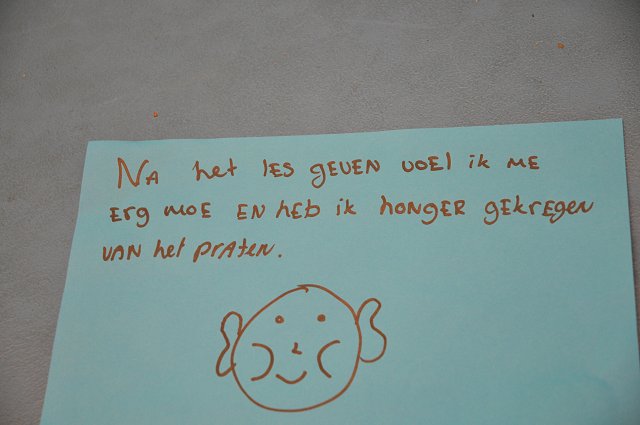 Na het les geven voel ik me
erg moe en heb ik honger gekregen
van het praten.